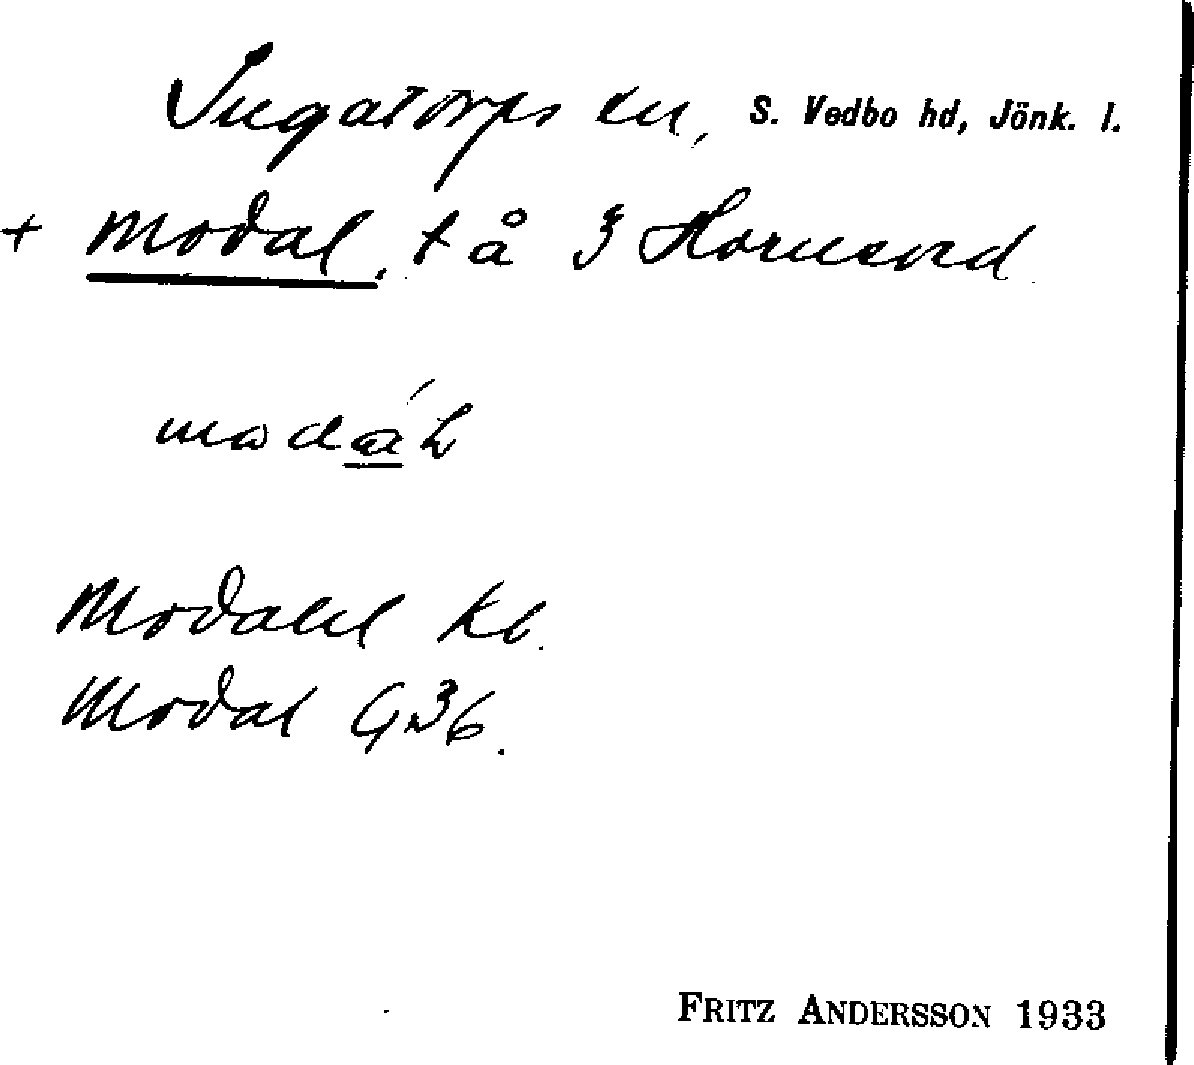 Ingatorps sn, S. Vedbo hd, Jönk. l.
+ Modal, t å 3 Hornsved
modáL
Modahl Kb.
Modal G 36.
FRITZ ANDERSSON 1933